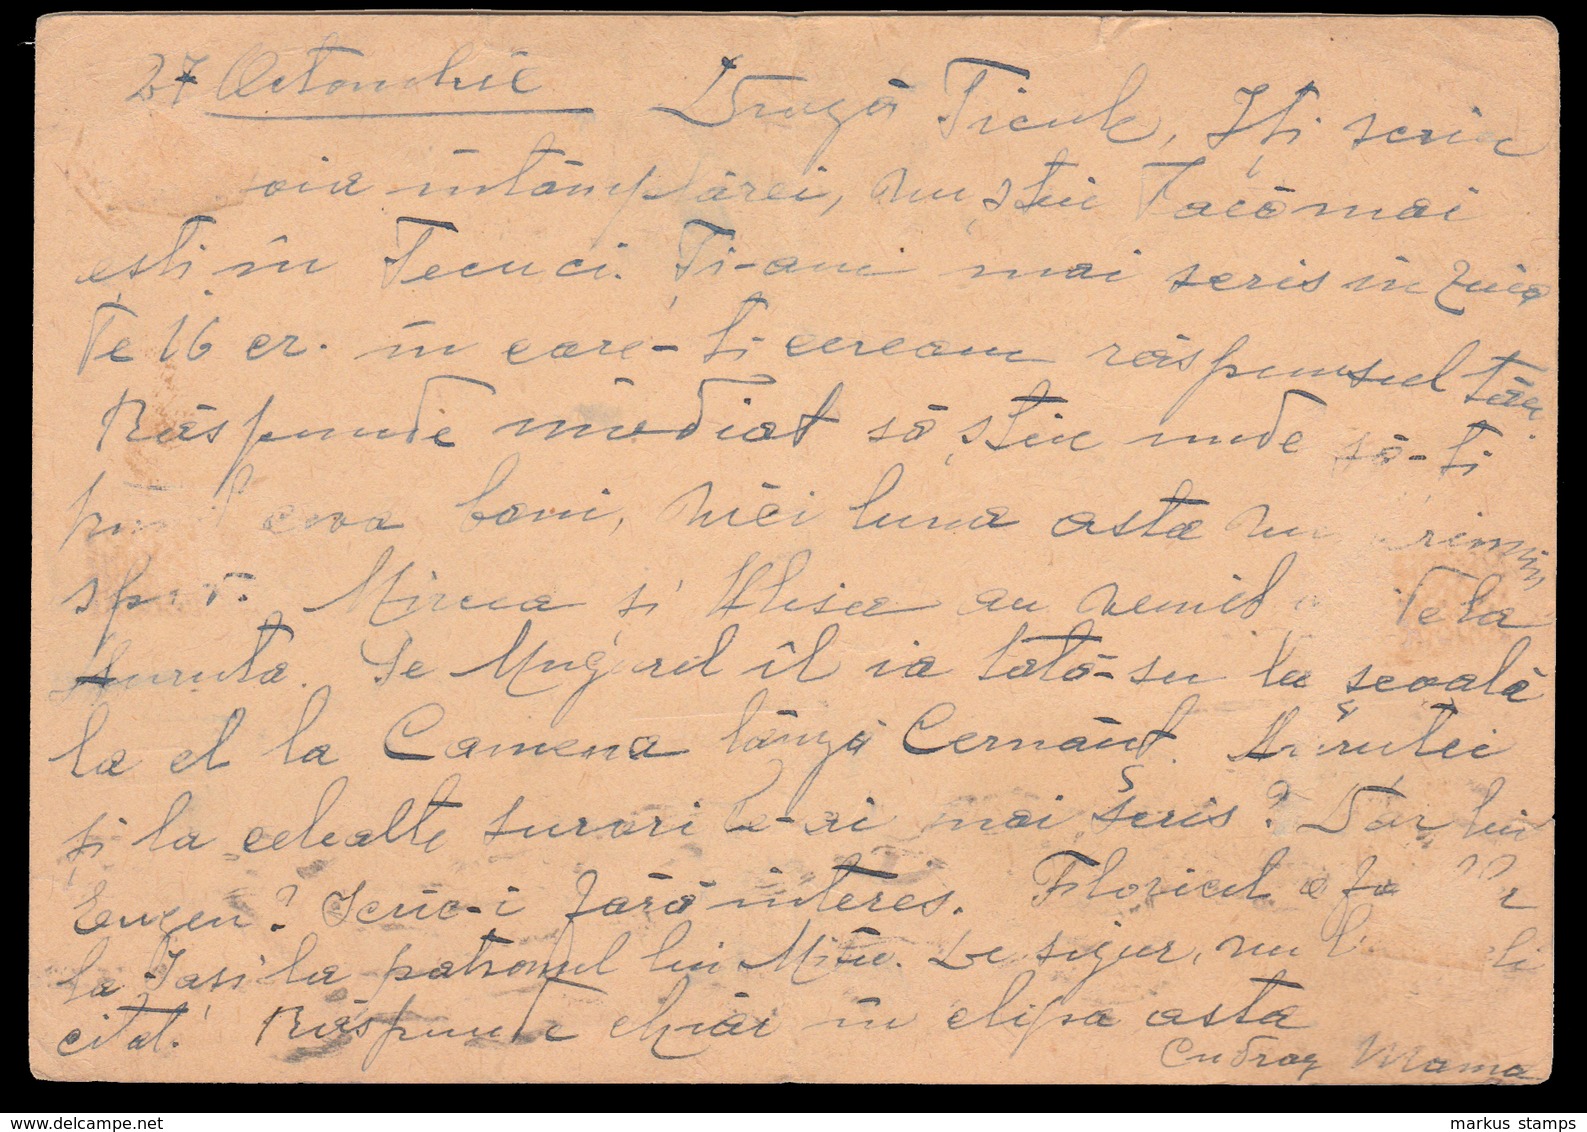 27 Octombrie Dragă Ticule, Îți scriu
voia întâmplărei, nu știu dacă mai
ești în Tecuci. Ți-am mai scris în ziua
de 16 cr. în care-ți ceream răspunsul tău.
Răspunde imediat să știu unde să-ți
ceva bani, nici luna asta nu
Mircea și Alisa au venit de la
Auruta. Pe Mugurel îl ia tată-su la școală
la el la Camena lângă Cernăut. Aurutei
și la celealte surori le-ai mai scris? Dar lui
Eugen? Scrie-i fără interes. Floricel a
la Iasi la patronul lui Miti. De sigur, nu
citat. Răspunde chiar în clipa asta
Cu drag Mama
markus stamps